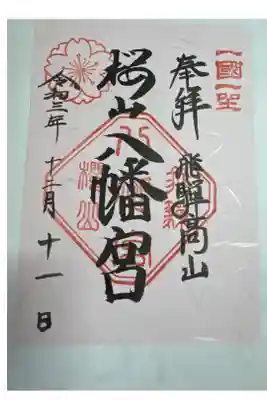 奉拝
飛騨高山
桜山八幡宮
令和三年十二月十一日
櫻山